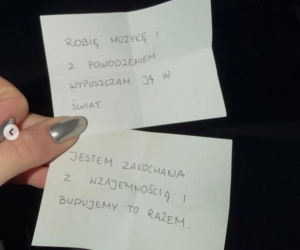 ROBIĘ MUZYKĘ I
Z POWODZENIEM
WYPUSZCZAM JĄ W
ŚWIAT.
JESTEM ZAKOCHANA
Z WZAJEMNOŚCIĄ I
BUDUJEMY TO RAZEM.